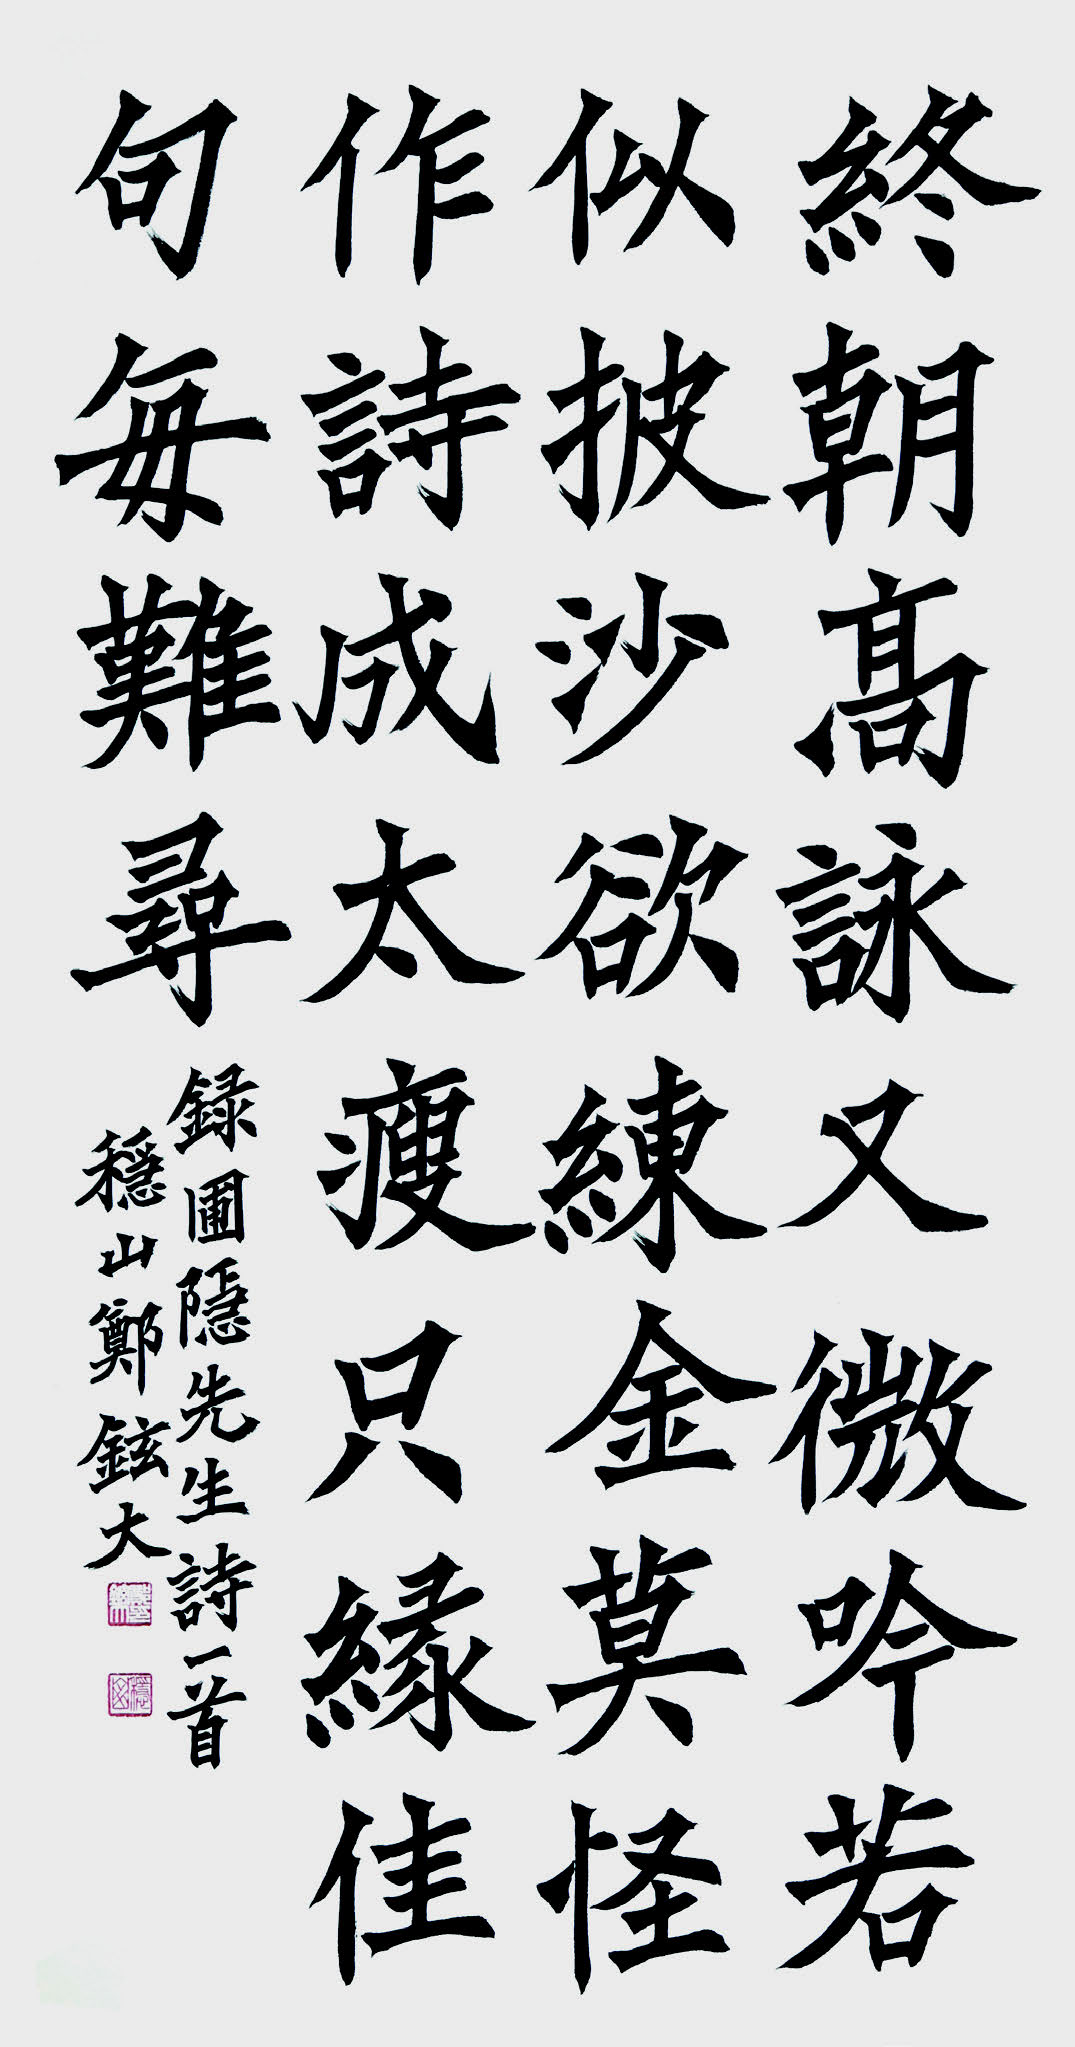 終朝高詠又微吟若
似披沙欲練金莫怪
作詩成太瘦只緣佳
句每難尋
録圃隱先生詩一首
穩山鄭鉉大